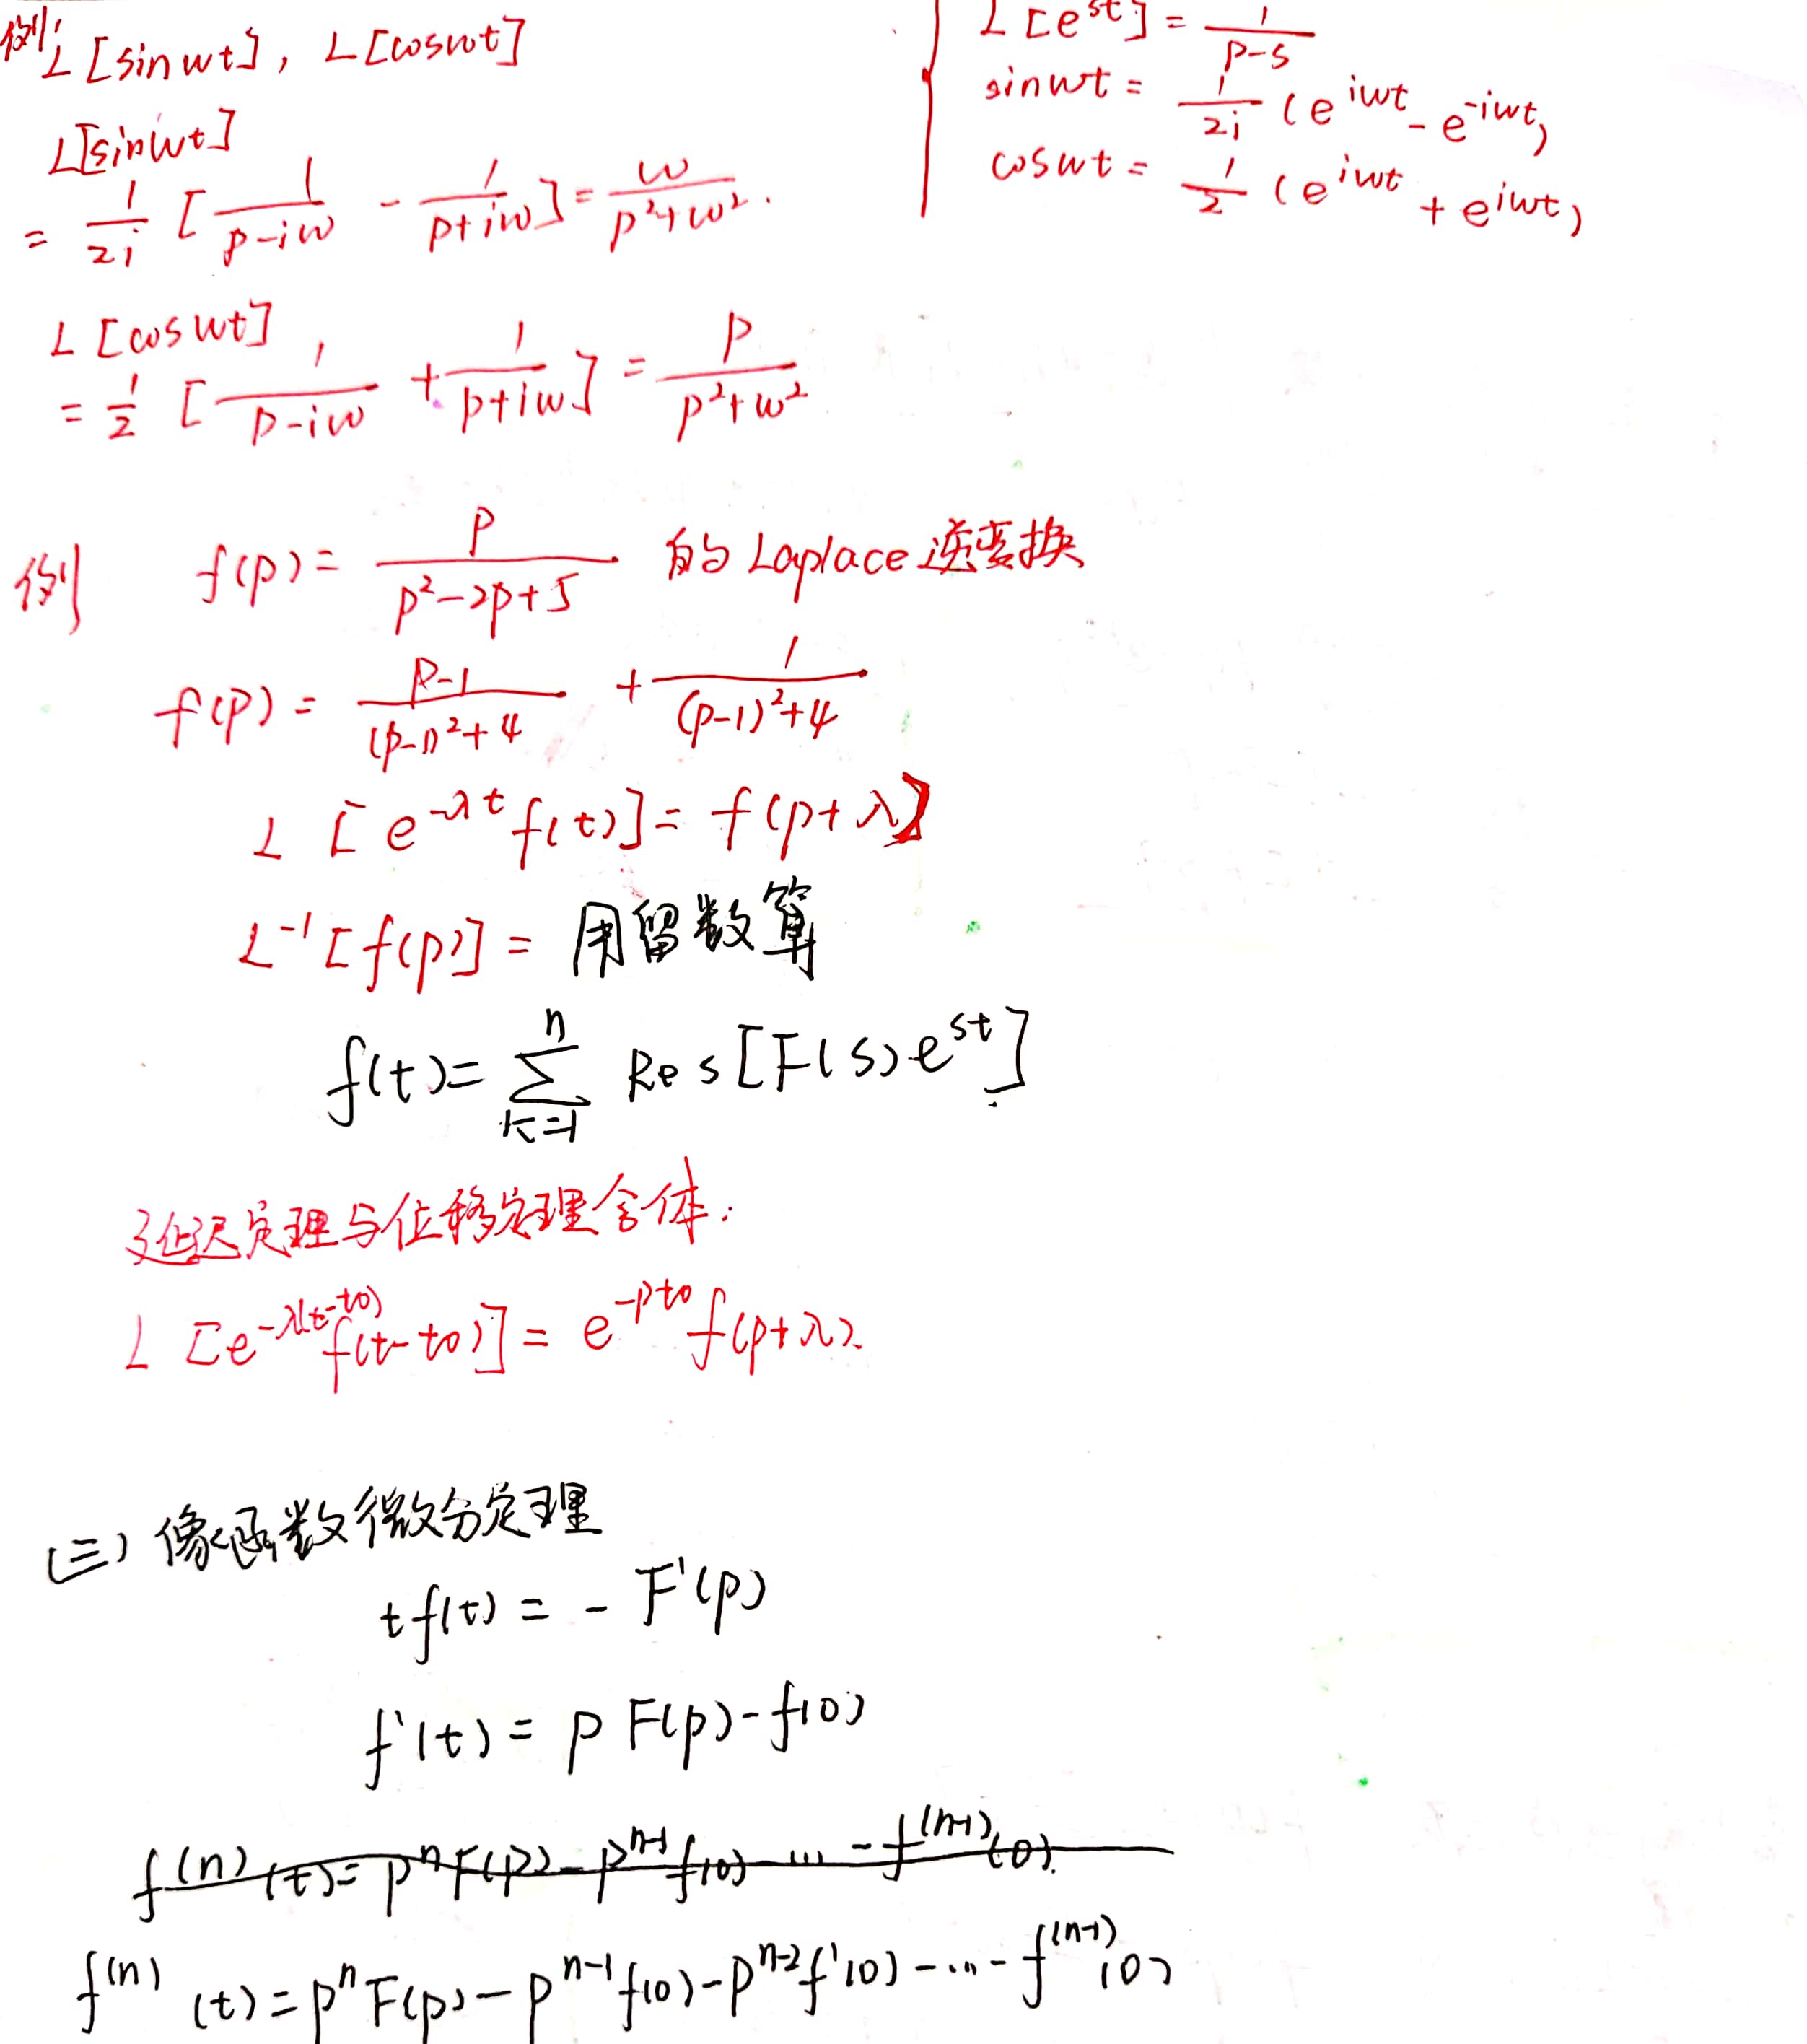 例 L[sinwt], L[coswt]
L[sinwt]
= 1/2i [1/(p-iw) - 1/(p+iw)] = w/(p²+w²).
L[e^{st}] = 1/(p-s)
sinwt = 1/2i (e^{iwt} - e^{-iwt})
coswt = 1/2 (e^{iwt} + e^{iwt})
L[coswt]
= 1/2 [1/(p-iw) + 1/(p+iw)] = p/(p²+w²)
例 f(p) = p/(p²-2p+5) 的Laplace逆变换
f(p) = (p-1)/((p-1)²+4) + 1/((p-1)²+4)
L[e^{-λt}f(t)] = f(p+λ)
L^{-1}[f(p)] = 用留数算
f(t) = ∑_{k=1}^{n} Res[F(s)e^{st}]
延迟定理与位移定理合体.
L[e^{-λ(t-t0)}f(t-t0)] = e^{-pt0}f(p+λ).
(三) 像函数微分定理
tf(t) = -F'(p)
f'(t) = pF(p)-f(0)
f^{(n)}(t) = p^n F(p) - p^{n-1}f(0) ... - f^{(n-1)}(0).
f^{(n)}(t) = p^n F(p) - p^{n-1}f(0) - p^{n-2}f'(0) - ... - f^{(n-1)}(0)